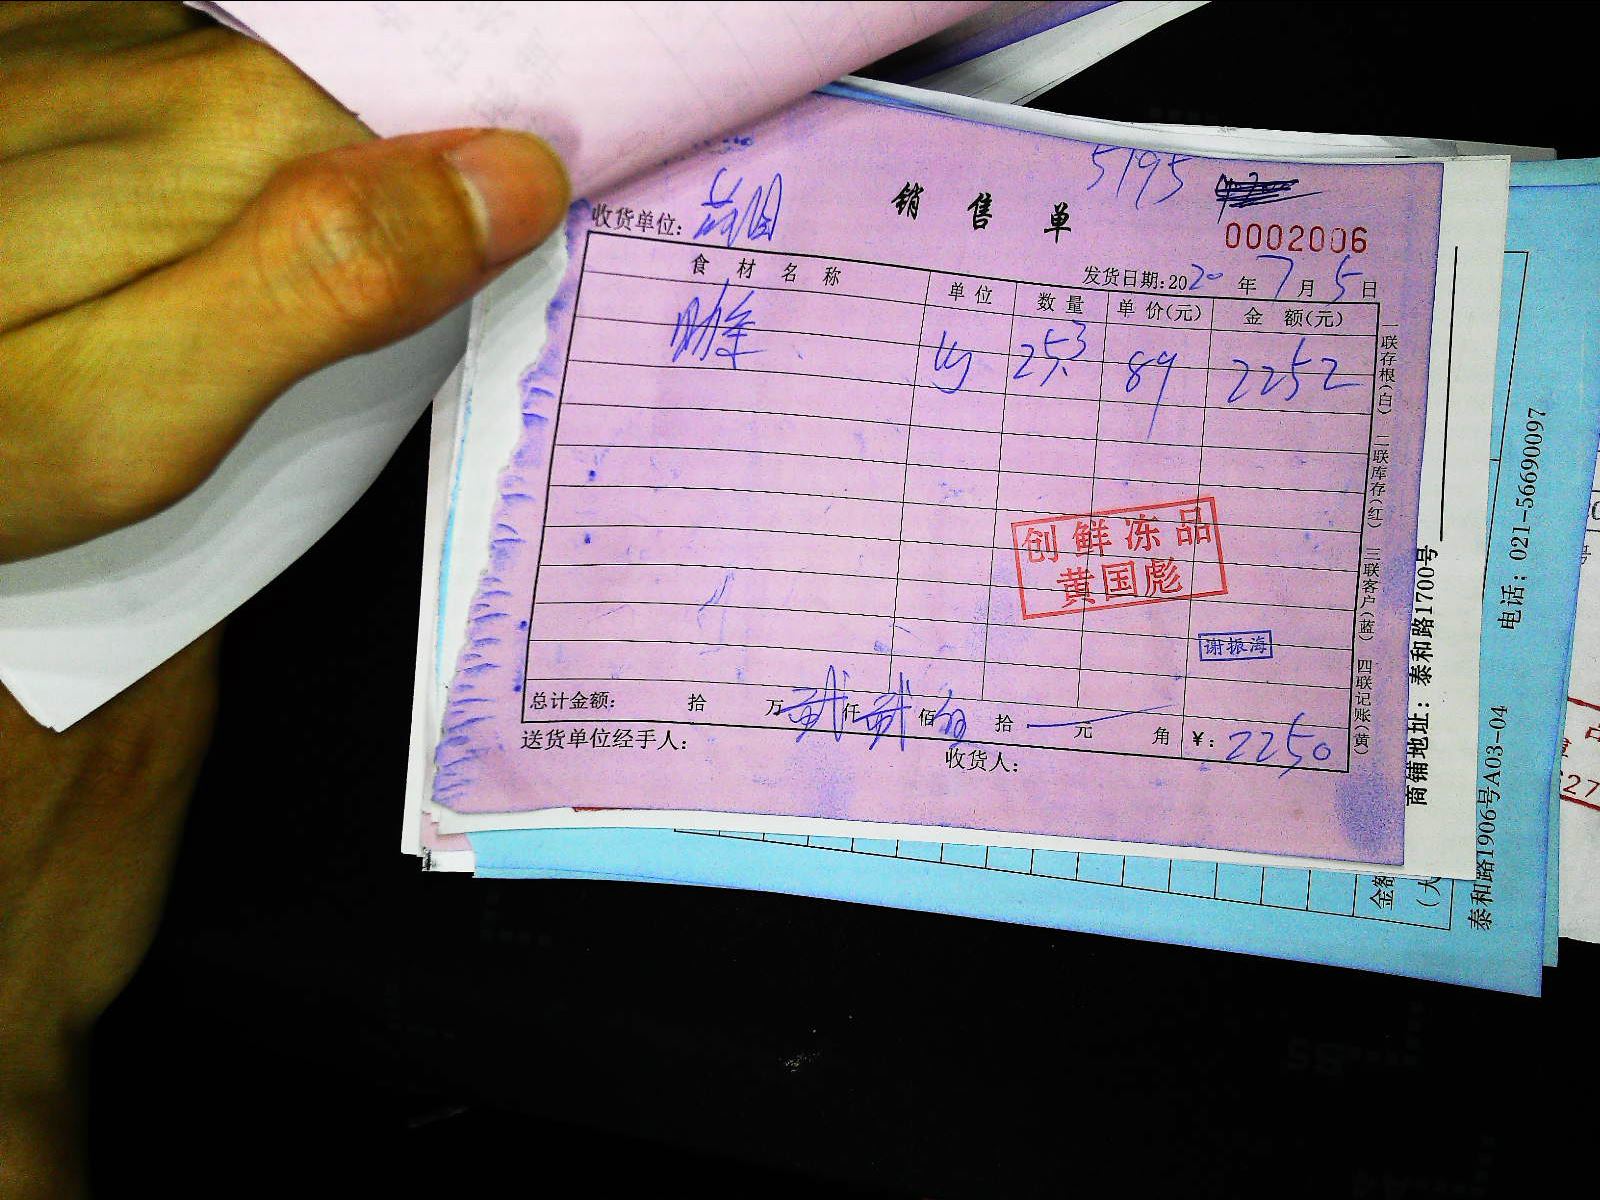 5195
销售单
0002006
收货单位:
发货日期:2020年7月5日
食材名称 单位 数量 单价(元) 金额(元)
肋条 25.3 89 2252
创鲜冻品
黄国彪
谢振海
总计金额: 拾 万 贰 仟 贰 佰 拾 元 角 ¥: 2250
送货单位经手人:
收货人:
一联存根(白) 二联库存(红) 三联客户(蓝) 四联记账(黄)
商铺地址: 泰和路1700号
泰和路1906号A03-04 电话: 021-56690097
金额
(大